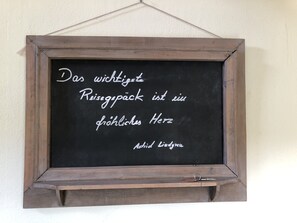 Das wichtigste
Reisegepäck ist ein
fröhliches Herz
Astrid Lindgren